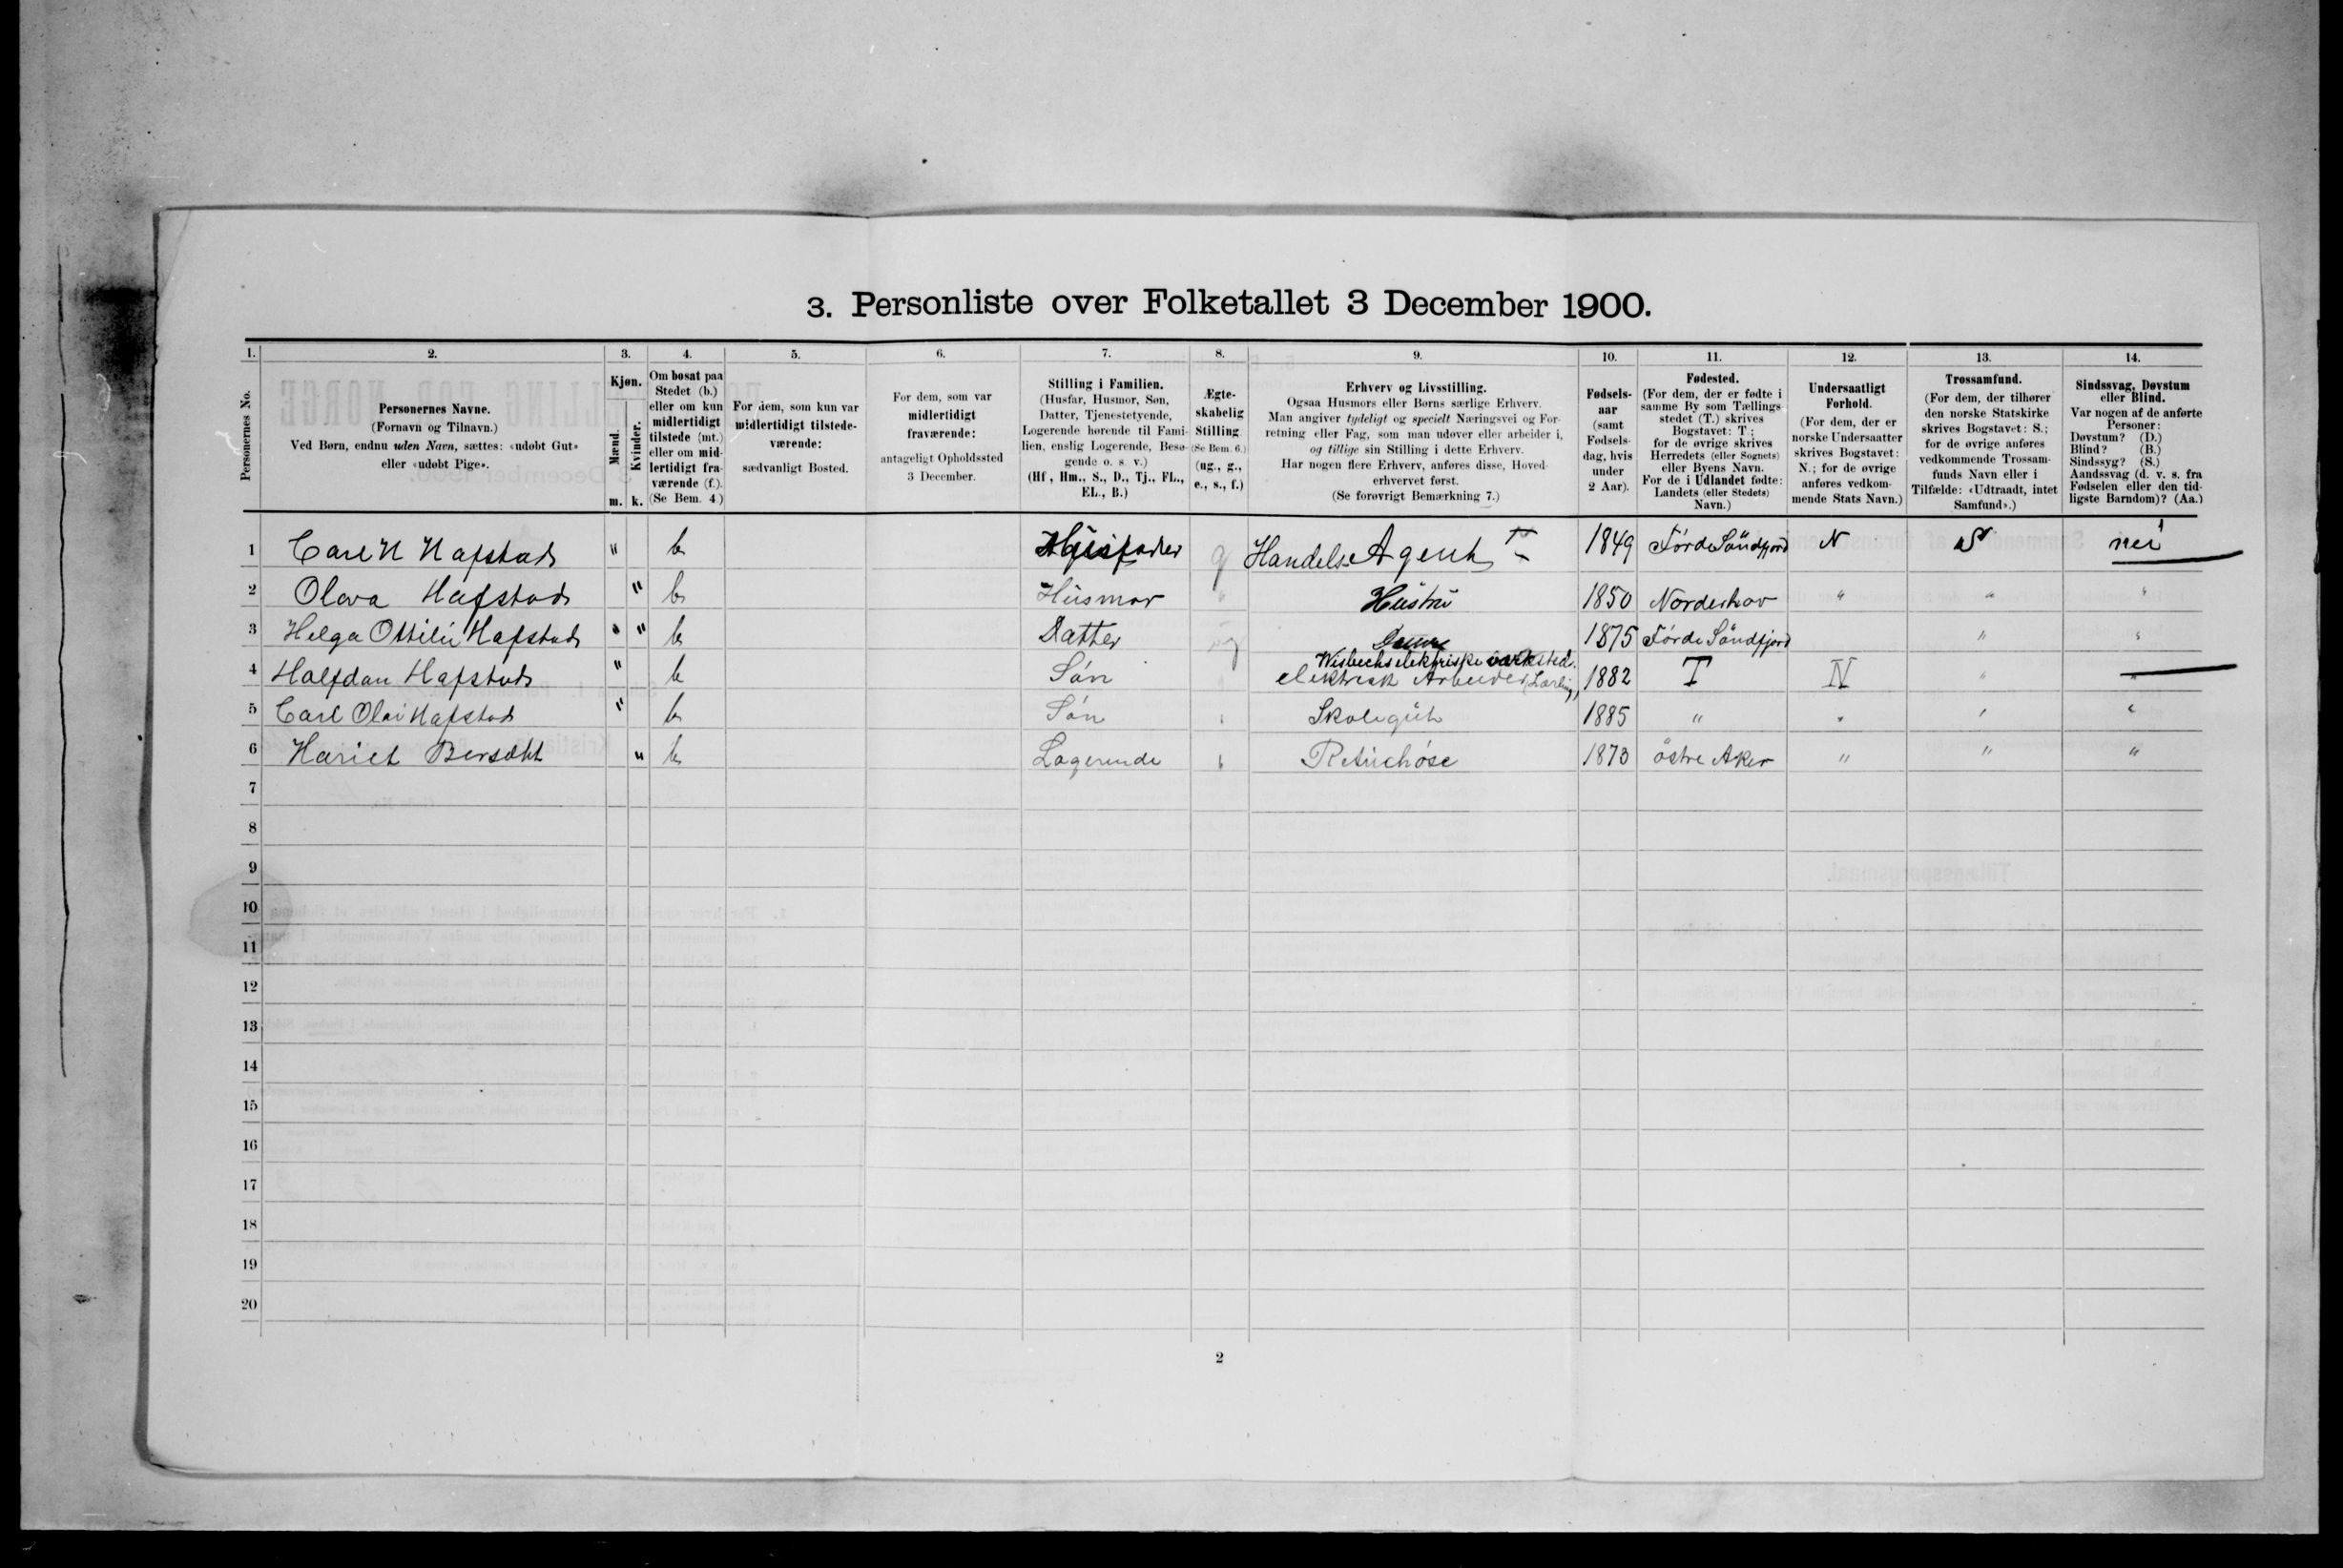 3. Personliste over Folketallet 3 December 1900.
1. 2. 3. 4. 5. 6. 7. 8. 9. 10. 11. 12. 13. 14.
Personernes No.
Personernes Navne.
(Fornavn og Tilnavn.)
Ved Børn, endnu uden Navn, sættes: «udøbt Gut»
eller «udøbt Pige».
Kjøn.
Mænd.
Kvinder.
m. k.
Om bosat paa
Stedet (b.)
eller om kun
midlertidigt
tilstede (mt.)
eller om mid-
lertidigt fra-
værende (f.).
(Se Bem. 4.)
For dem, som kun var
midlertidigt tilstede-
værende:
sædvanligt Bosted.
For dem, som var
midlertidigt
fraværende:
antageligt Opholdssted
3 December.
Stilling i Familien.
(Husfar, Husmor, Søn,
Datter, Tjenestetyende,
Logerende hørende til Fami-
lien, enslig Logerende, Besø-
gende o. s. v.)
(Hf., Hm., S., D., Tj., FL.,
EL., B.)
Ægte-
skabelig
Stilling.
(Se Bem. 6.)
(ug., g.,
e., s., f.)
Erhverv og Livsstilling.
Ogsaa Husmors eller Børns særlige Erhverv.
Man angiver tydeligt og specielt Næringsvei og For-
retning eller Fag, som man udøver eller arbeider i,
og tillige sin Stilling i dette Erhverv.
Har nogen flere Erhverv, anføres disse, Hoved-
erhvervet først.
(Se forøvrigt Bemærkning 7.)
Fødsels-
aar
(samt
Fødsels-
dag, hvis
under
2 Aar).
Fødested.
(For dem, der er fødte i
samme By som Tællings-
stedet (T.) skrives
Bogstavet: T.;
for de øvrige skrives
Herredets (eller Sognets)
eller Byens Navn.
For de i Udlandet fødte:
Landets (eller Stedets)
Navn.)
Undersaatligt
Forhold.
(For dem, der er
norske Undersaatter
skrives Bogstavet:
N.; for de øvrige
anføres vedkom-
mende Stats Navn.)
Trossamfund.
(For dem, der tilhører
den norske Statskirke
skrives Bogstavet: S.;
for de øvrige anføres
vedkommende Trossam-
funds Navn eller i
Tilfælde: «Udtraadt, intet
Samfund».)
Sindssvag, Døvstum
eller Blind.
Var nogen af de anførte
Personer:
Døvstum? (D.)
Blind? (B.)
Sindssyg? (S.)
Aandssvag (d. v. s. fra
Fødselen eller den tid-
ligste Barndom)? (Aa.)
1 Carl N Hafstad " b Husfader g Handels-Agent 1849 Förde Söndfjord N S nei
2 Olava Hafstad " b Husmor " Hustru 1850 Norderhov " " "
3 Helga Ottilie Hafstad " b Datter ug 1875 Förde Söndfjord " "
Wisbechs elektriske værksted.
4 Halfdan Hafstad " b Són elektrisk Arbeider (Lærling) 1882 T N " "
5 Carl Olai Hafstad " b Són " Skolegut 1885 " " " "
6 Hariet Bersdht " b Logerende " Retuchóse 1873 östre Aker " " "
7
8
9
10
11
12
13
14
15
16
17
18
19
20
2